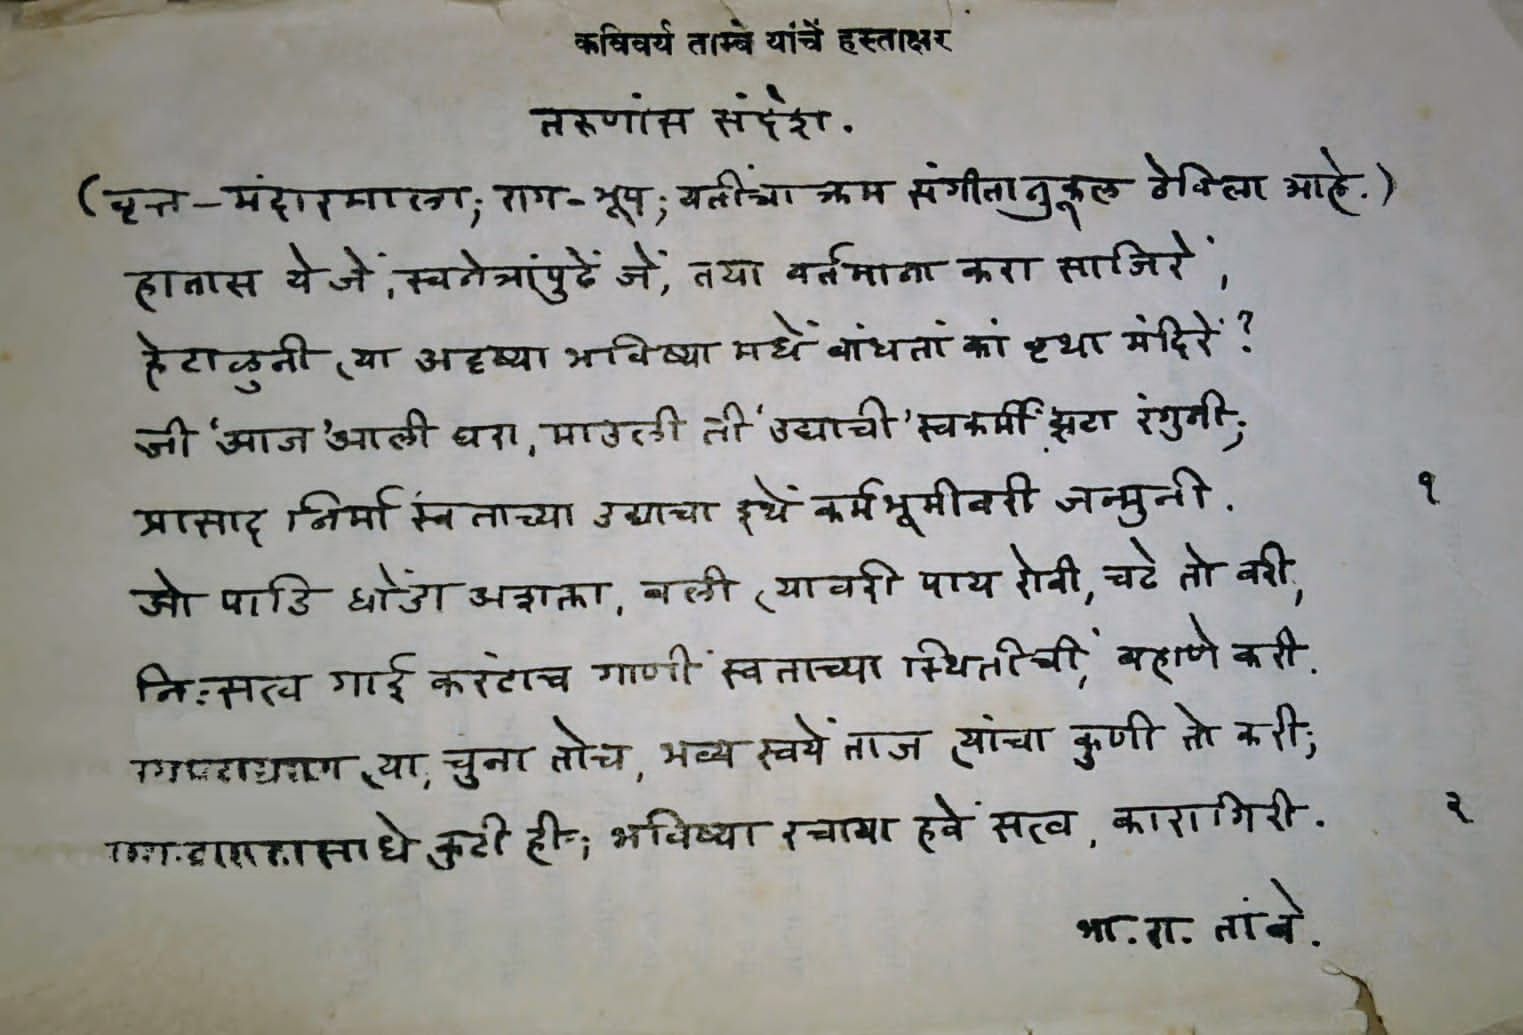 कविवर्य ताम्बे यांचें हस्ताक्षर
तरुणांस संदेश.
(वृत्त – मंदारमाला; राग - भूप; यतींचा क्रम संगीतानुकूल ठेविला आहे.)
हातास ये जें, स्वनेत्रांपुढें जें, तया वर्तमाना करा साजिरें,
हेटाळुनी त्या अदृष्या भविष्या मधें बांधतां कां वृथा मंदिरें?
जी 'आज' आली घरा, माउली ती 'उद्याची' स्वकर्मीं झटा रंगुनी;
प्रासाद निर्मा स्वताच्या उद्याचा इथें कर्मभूमीवरी जन्मुनी. १
जो पाडि धोंडा अशक्ता, बली त्यावरी पाय रोवी, चढे तो वरी,
निःसत्व गाई करंटाच गाणीं स्वताच्या स्थितीचीं, बहाणे करी.
त्या, चुना तोच, भव्य स्वयें ताज त्यांचा कुणी तो करी;
साधे कुटी ही; भविष्या रचाया हवें सत्व, कारागिरी. २
भा. रा. तांबे.